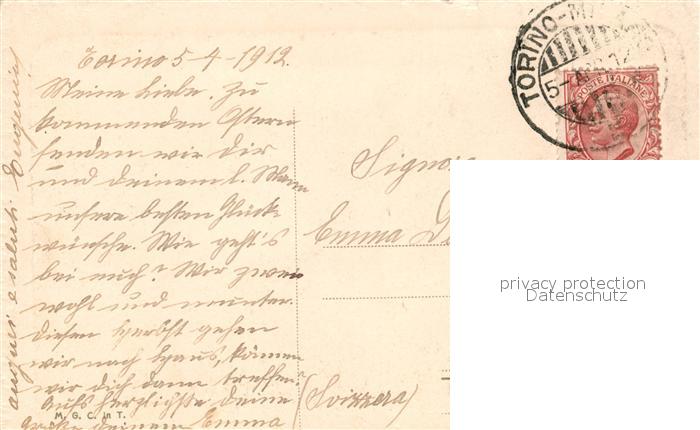 Torino 5-4-1912.
Meine Liebe. Zu
kommenden Ostern
senden wir Dir
und Deinem l. Mann
unsere besten Glück
wünsche. Wie geht's
bei euch? Wir zwei
wohl und munter.
Diesen Herbst gehen
wir nach Haus, können
wir dich dann treffen?
Aufs herzlichste Deine
Emma
auguri e saluti Eugenio
M. G. C. in T.
TORINO
5-4 12
POSTE ITALIANE
Signora
Emma
(Svizzera)
privacy protection
Datenschutz